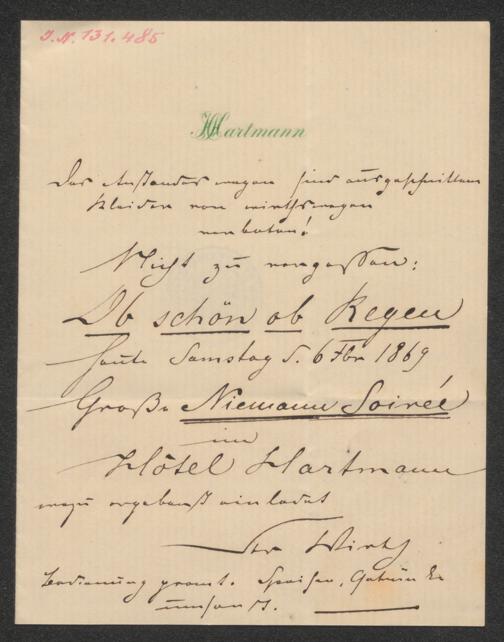 J.N. 131.485
Hartmann
Des Anstandes wegen sind ausgeschnittene
Kleider von wirthswegen
verboten!
Nicht zu vergessen:
Ob schön ob Regen
heute Samstag d. 6 Fbr 1869
Große Niemann Soireé
im
Hôtel Hartmann
wozu ergebenst einladet
Der Wirth
Bedienung promt. Speisen, Getränke
umsonst.